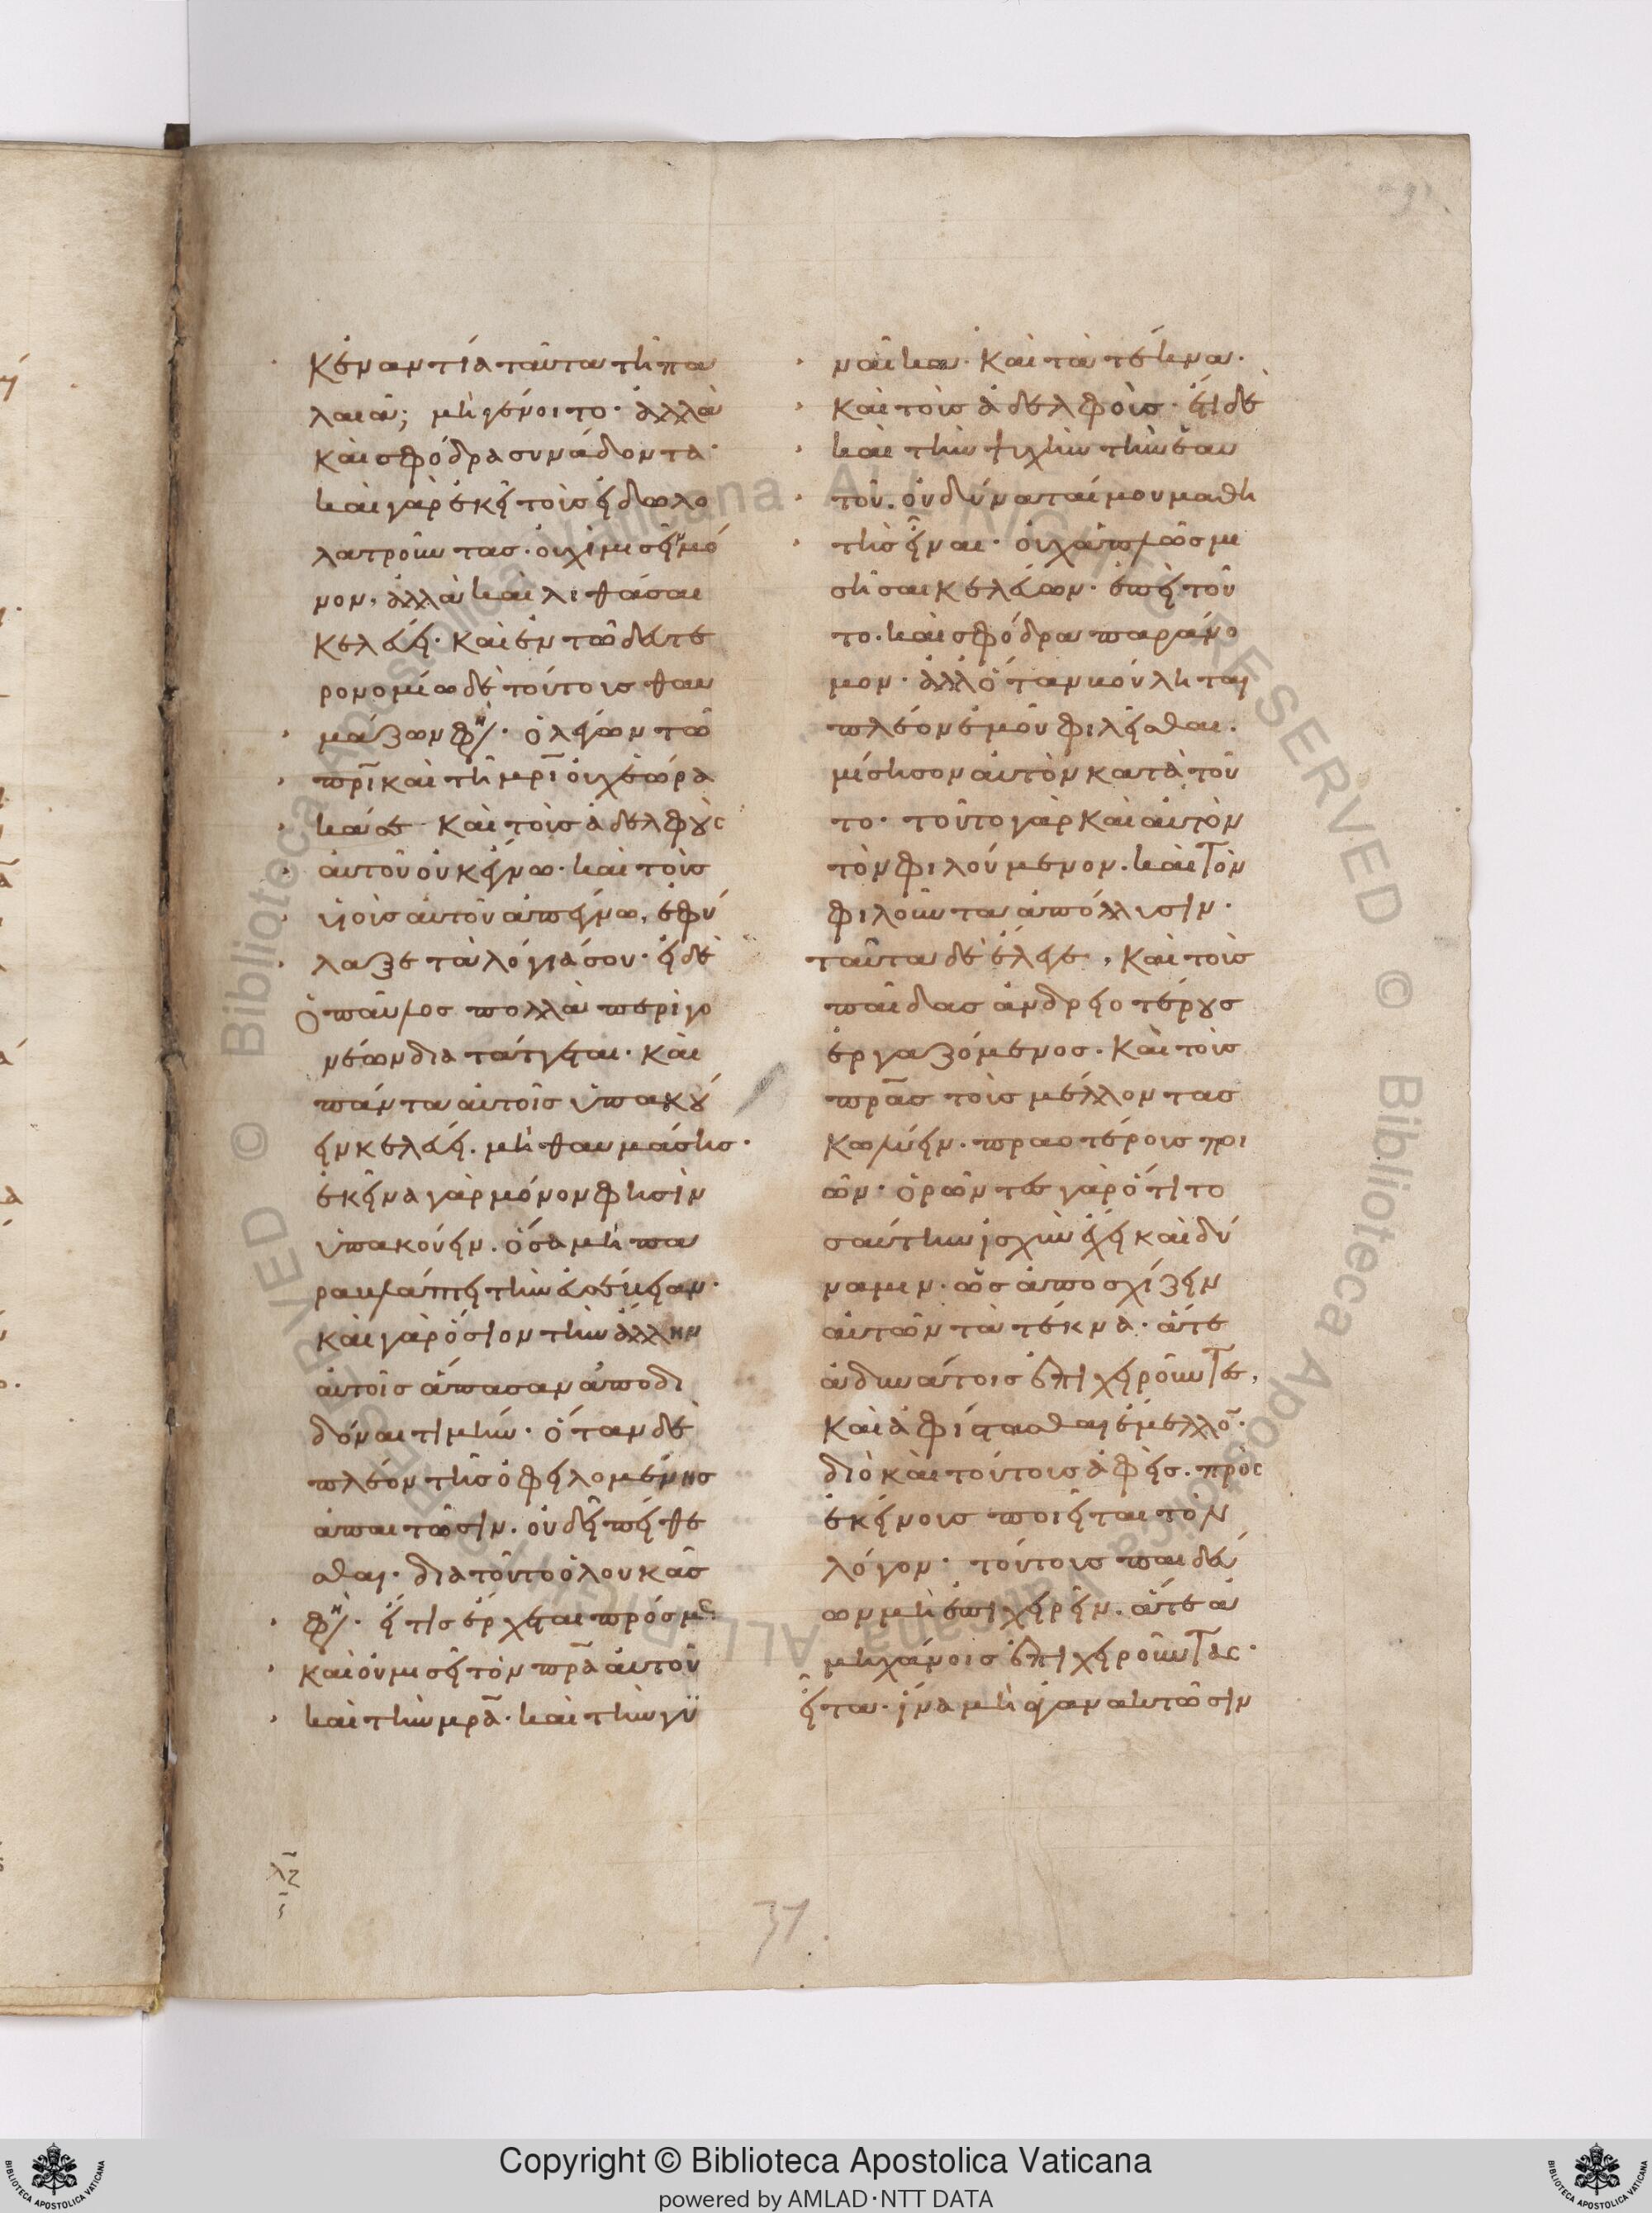 κἐναντία ταῦτα τῆ πα
λαιᾶ; μὴ γένοιτο· ἀλλὰ
καὶ σφόδρα συνάδοντα·
καὶ γὰρ ἐκεῖ τοὺς εἰδωλο
λατροῦντας· οὐχὶ μισεῖν μό
νον, ἀλλὰ καὶ λιθάσαι
κελεύει· καὶ ἐν τῶ δευτε
ρονομίω δὲ τούτους θαυ
μάζων φη· ὁ λέγων τῶ
πρῒ καὶ τῆ μρῒ οὐχ ἑώρα
κά σε καὶ τοὺς ἀδελφοὺς
αὐτοῦ οὐκ ἔγνω· καὶ τοὺς
υἱοὺς αὐτοῦ ἀπέγνω, ἐφύ
λαξε τὰ λόγιά σου· εἰ δὲ
ὁ παῦλος πολλὰ περὶ γο
νέων διατάττεται· καὶ
πάντα αὐτοῖς ὑπακού
ειν κελεύει. μὴ θαυμάσης·
ἐκεῖνα γὰρ μόνον φησὶν
ὑπακούειν. ὅσα μὴ πα
ραβλάπτει τὴν εὐσέβειαν·
καὶ γὰρ ὅσιον τὴν ἄλλην
αὐτοῖς ἅπασαν ἀποδι
δόναι τιμήν· ὅταν δὲ
πλέον τῆς ὀφειλομένης
ἀπαιτῶσιν. οὐ δεῖ πείθε
σθαι· διὰ τοῦτο ὁ λουκᾶς
φη· εἴ τις ἔρχεται πρός με
καὶ οὐ μισεῖ τὸν πρα αὐτοῦ
καὶ τὴν μρα· καὶ τὴν γυ
ναῖκα· καὶ τὰ τέκνα·
καὶ τοὺς ἀδελφούς· ἔτι δὲ
καὶ τὴν ψυχὴν τὴν ἑαυ
τοῦ. οὐ δύναταί μου μαθη
τὴς εἶναι· οὐχ ἁπλῶς μι
σῆσαι κελεύων· ἐπεὶ τοῦ
το. καὶ σφόδρα παράνο
μον· ἀλλ' ὅταν βούληται
πλέον ἐμοῦ φιλεῖσθαι.
μίσησον αὐτὸν κατὰ τοῦ
το· τοῦτο γὰρ καὶ αὐτὸν
τὸν φιλούμενον. καὶ τὸν
φιλοῦντα ἀπόλλυσιν·
ταῦτα δὲ ἔλεγε, καὶ τοὺς
παῖδας ἀνδρειοτέρους
ἐργαζόμενος. καὶ τοὺς
πρας τοὺς μέλλοντας
κωλύειν. πραοτέρους ποι
ῶν· ὁρῶντες γὰρ ὅτι το
σαύτην ἰσχὺν ἔχει καὶ δύ
ναμιν· ὡς ἀποσχίζειν
αὐτῶν τὰ τέκνα· ἅτε
ἀδυνάτοις ἐπιχειροῦντες,
καὶ ἀφίστασθαι ἔμελλον·
διὸ καὶ τούτους ἀφεὶς. πρὸς
ἐκείνους ποιεῖται τὸν
λόγον· τούτους παιδεύ
ων μὴ ἐπιχειρεῖν. ἅτε ἀ
μηχάνοις ἐπιχειροῦντας·
εἶτα· ἵνα μὴ ἀγανακτῶσιν
λζ
37